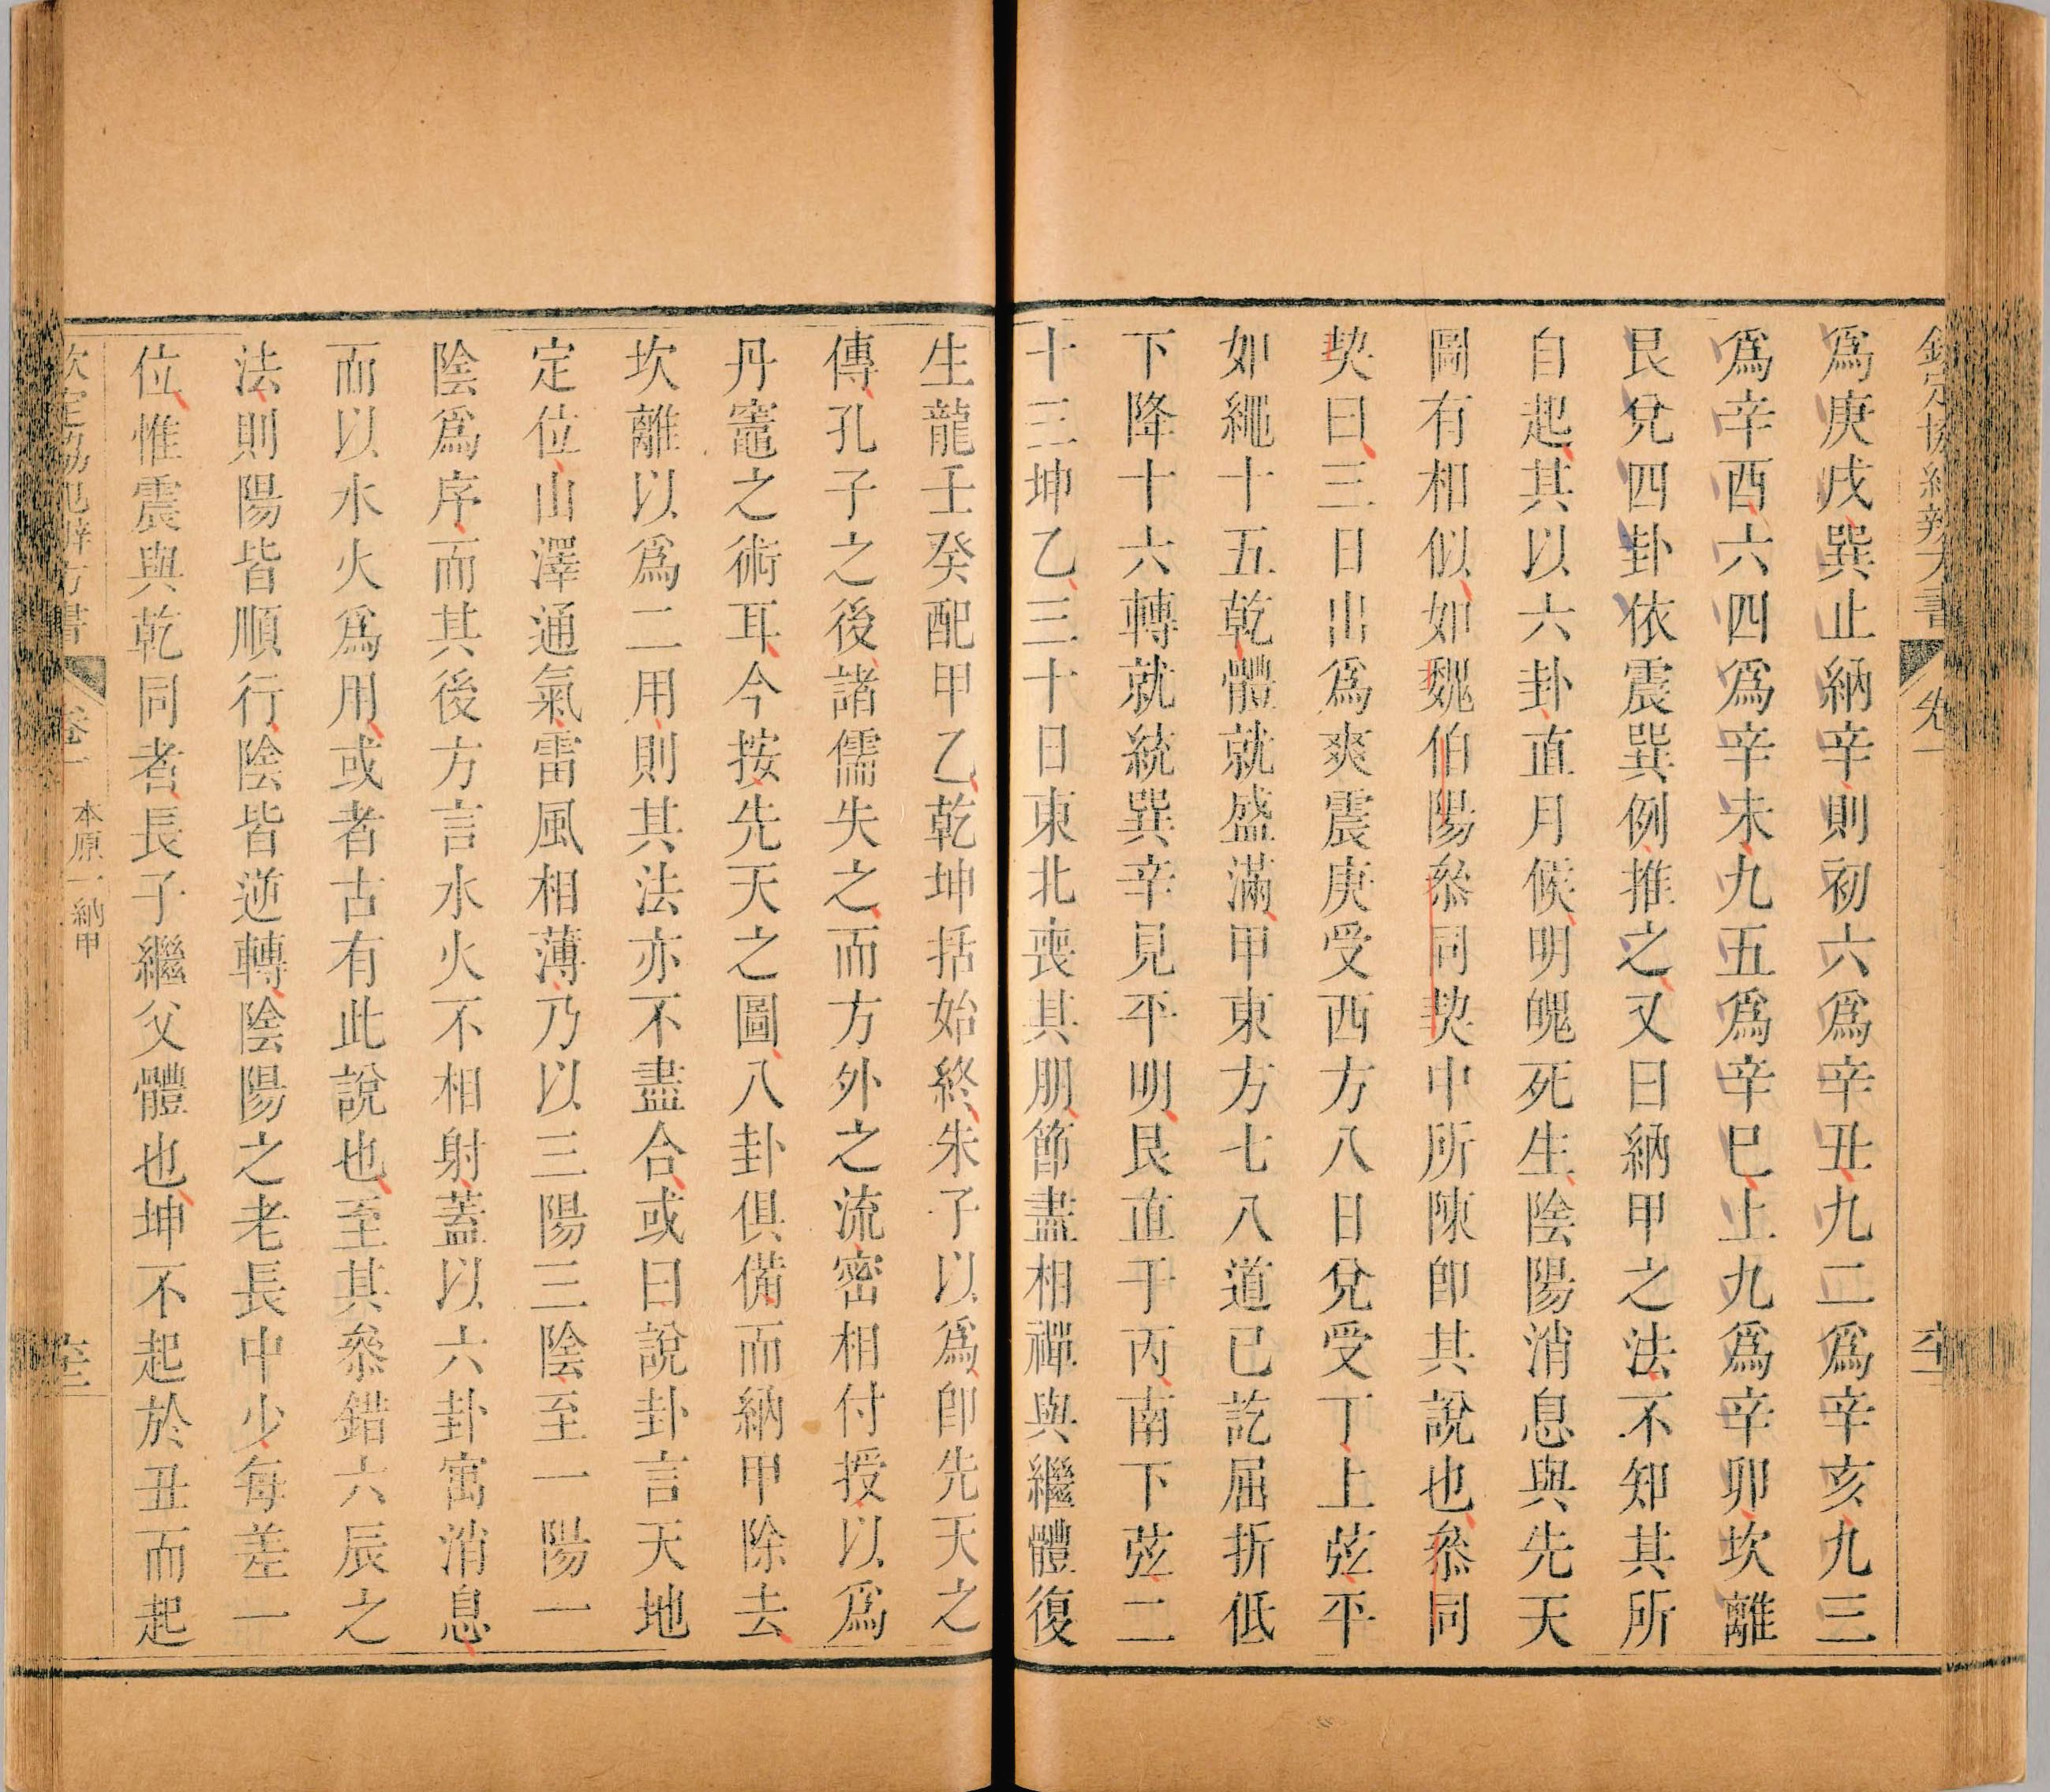 欽定協紀辨方書 卷一
爲庚戌巽止納辛則初六爲辛丑九二爲辛亥九三
爲辛酉六四爲辛未九五爲辛巳上九爲辛卯坎離
艮兌四卦依震巽例推之又曰納甲之法不知其所
自起其以六卦直月候明魄死生陰陽消息與先天
圖有相似如魏伯陽叅同契中所陳卽其說也叅同
契曰三日出爲爽震庚受西方八日兌受丁上弦平
如繩十五乾體就盛滿甲東方七八道已訖屈折低
下降十六轉就統巽辛見平明艮直于丙南下弦二
十三坤乙三十日東北喪其朋節盡相禪與繼體復
生龍壬癸配甲乙乾坤括始終朱子以爲卽先天之
傳孔子之後諸儒失之而方外之流密相付授以爲
丹竈之術耳今按先天之圖八卦俱備而納甲除去
坎離以爲二用則其法亦不盡合或曰說卦言天地
定位山澤通氣雷風相薄乃以三陽三陰至一陽一
陰爲序而其後方言水火不相射蓋以六卦寓消息
而以水火爲用或者古有此說也至其叅錯六辰之
法則陽皆順行陰皆逆轉陰陽之老長中少每差一
位惟震與乾同者長子繼父體也坤不起於丑而起
欽定協紀辨方書 卷一 本原一納甲